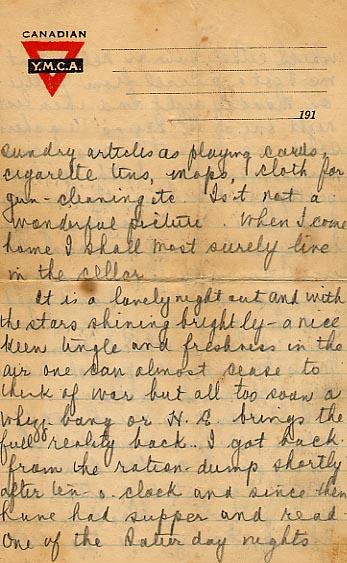 CANADIAN
Y.M.C.A.
191
sundry articles as playing cards,
cigarette tins, maps, cloth for
gun-cleaning etc. Is it not a
wonderful picture. When I come
home I shall most surely live
in the cellar.
It is a lovely night out and with
the stars shining brightly - a nice
keen tingle and freshness in the
air one can almost cease to
think of war but all too soon a
whizz bang or H.E. brings the
full reality back. I got back
from the ration-dump shortly
after ten-o-clock and since then
have had supper and read
one of the Sater day nights